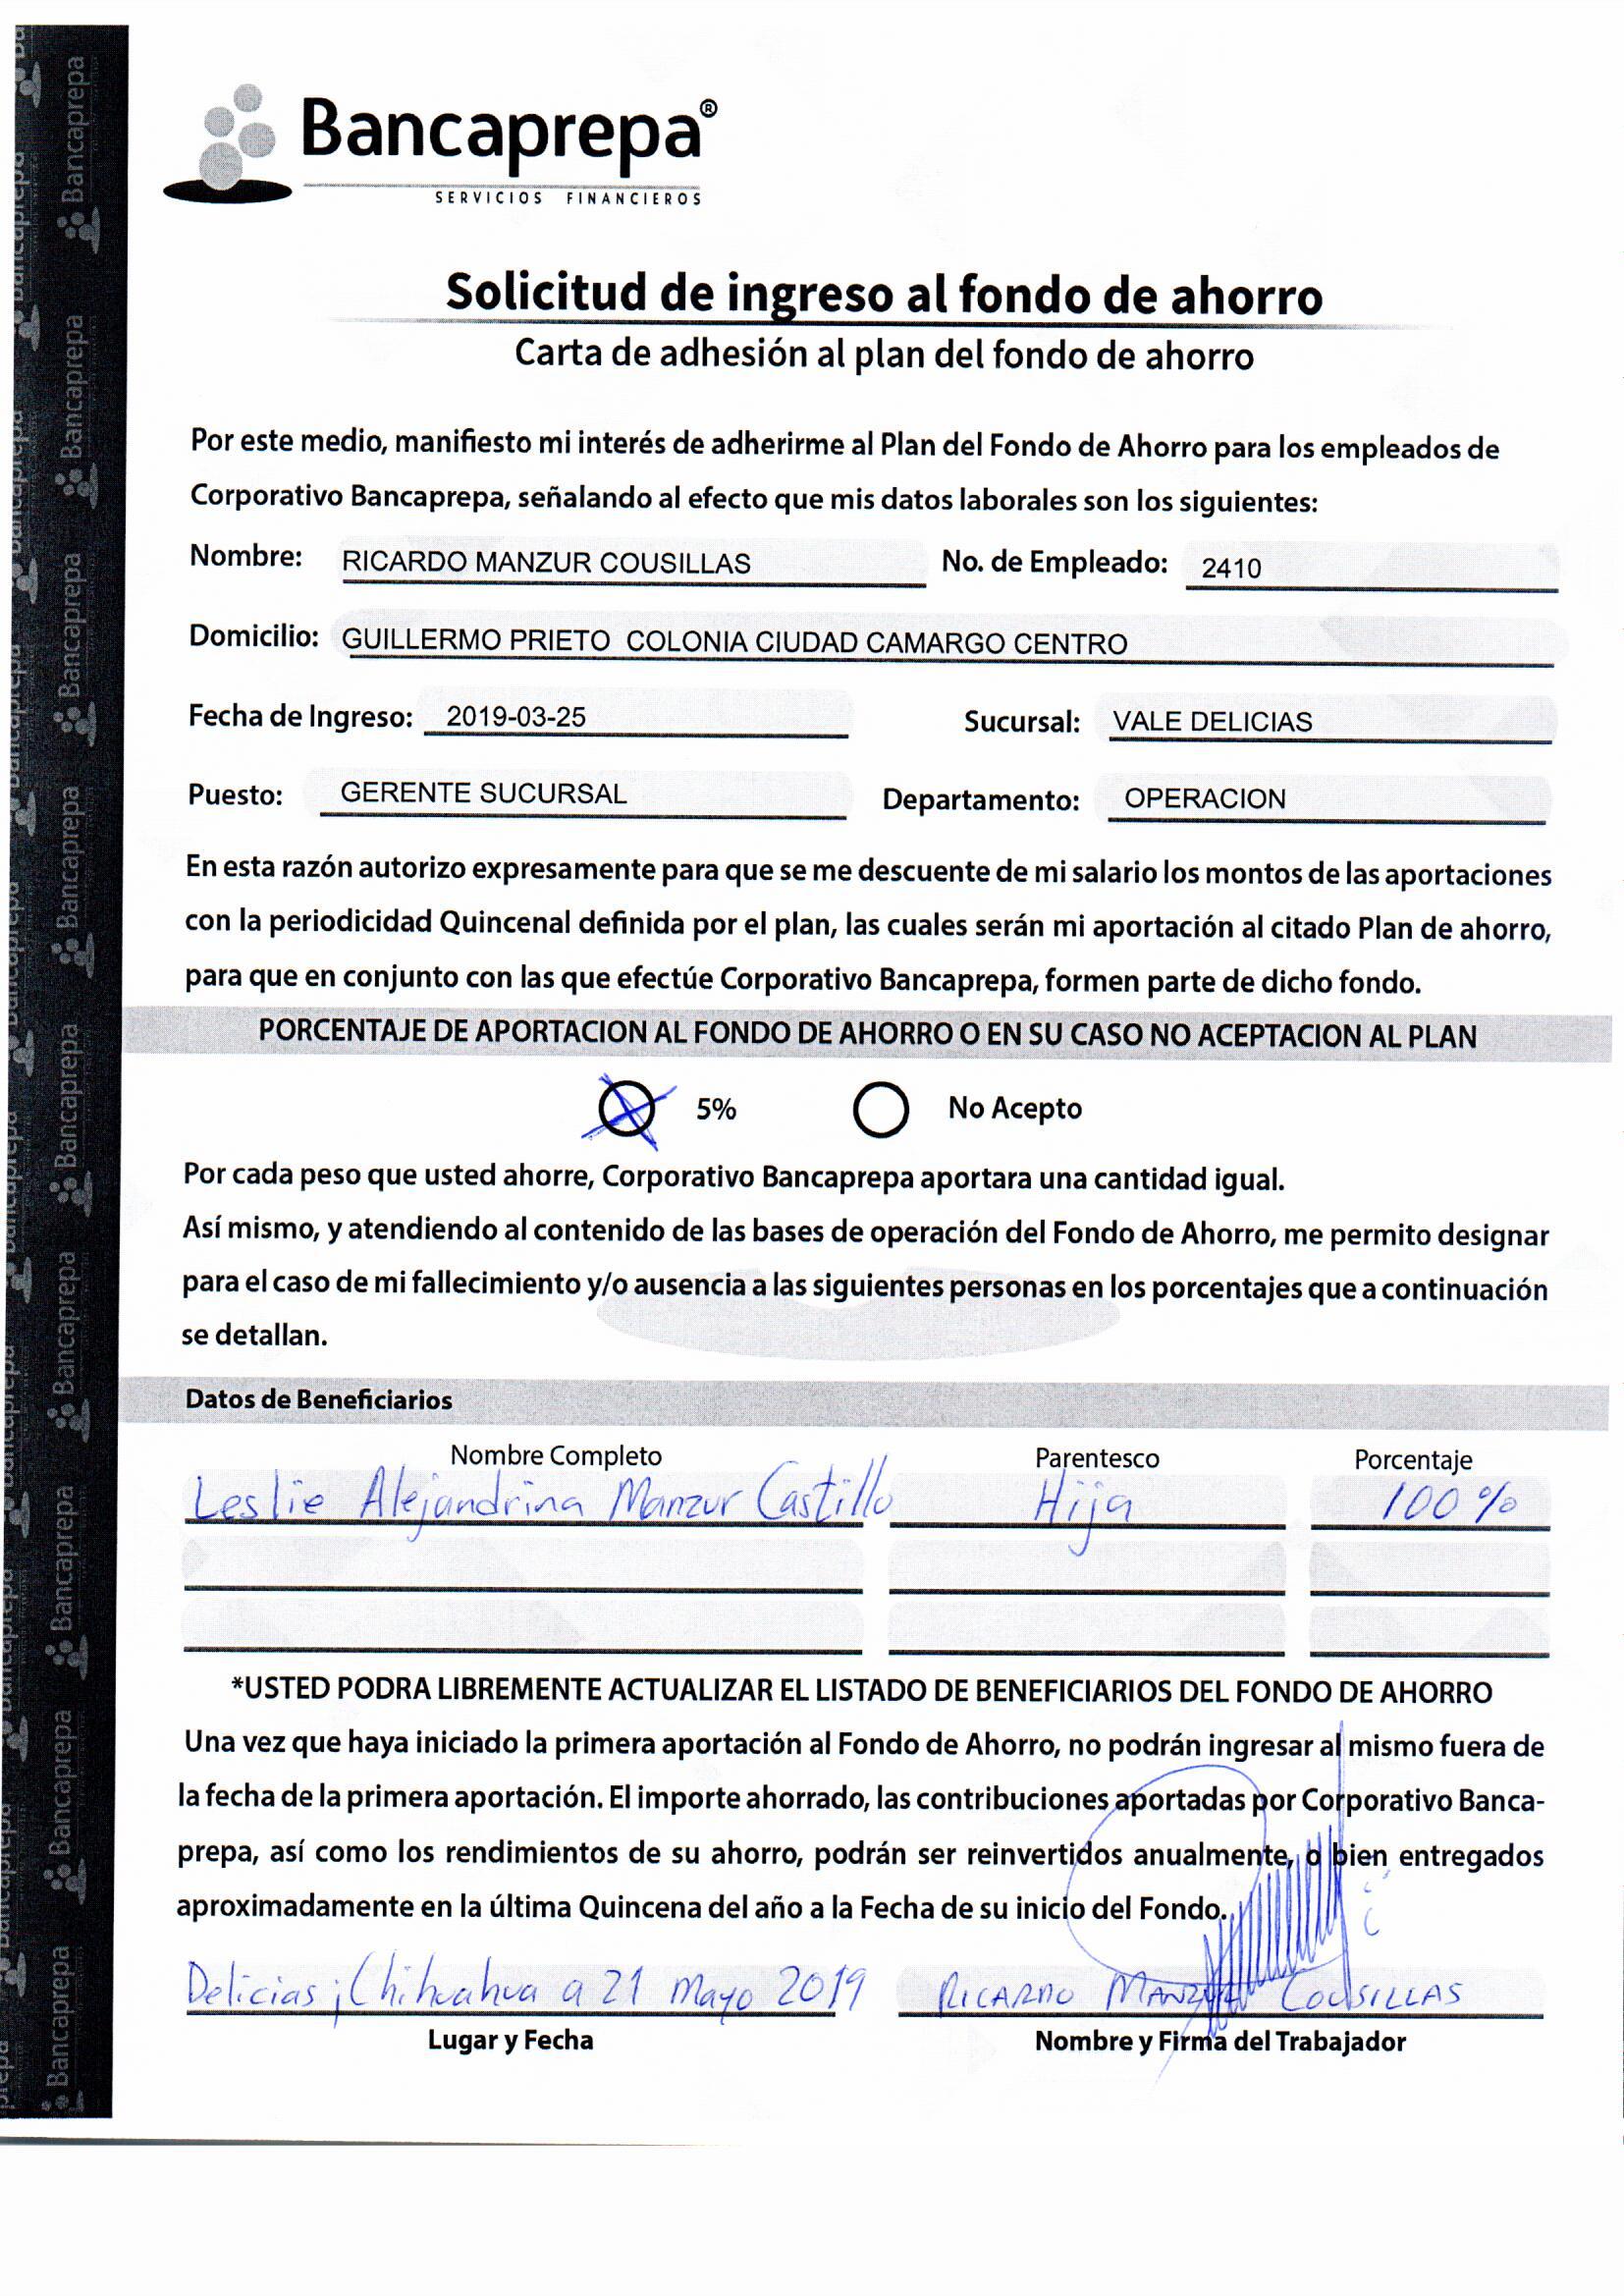 Bancaprepa®
SERVICIOS FINANCIEROS
Solicitud de ingreso al fondo de ahorro
Carta de adhesión al plan del fondo de ahorro
Por este medio, manifiesto mi interés de adherirme al Plan del Fondo de Ahorro para los empleados de
Corporativo Bancaprepa, señalando al efecto que mis datos laborales son los siguientes:
Nombre: RICARDO MANZUR COUSILLAS No. de Empleado: 2410
Domicilio: GUILLERMO PRIETO COLONIA CIUDAD CAMARGO CENTRO
Fecha de Ingreso: 2019-03-25 Sucursal: VALE DELICIAS
Puesto: GERENTE SUCURSAL Departamento: OPERACION
En esta razón autorizo expresamente para que se me descuente de mi salario los montos de las aportaciones
con la periodicidad Quincenal definida por el plan, las cuales serán mi aportación al citado Plan de ahorro,
para que en conjunto con las que efectúe Corporativo Bancaprepa, formen parte de dicho fondo.
PORCENTAJE DE APORTACION AL FONDO DE AHORRO O EN SU CASO NO ACEPTACION AL PLAN
5% No Acepto
Por cada peso que usted ahorre, Corporativo Bancaprepa aportara una cantidad igual.
Así mismo, y atendiendo al contenido de las bases de operación del Fondo de Ahorro, me permito designar
para el caso de mi fallecimiento y/o ausencia a las siguientes personas en los porcentajes que a continuación
se detallan.
Datos de Beneficiarios
Nombre Completo Parentesco Porcentaje
Leslie Alejandrina Manzur Castillo Hija 100%
*USTED PODRA LIBREMENTE ACTUALIZAR EL LISTADO DE BENEFICIARIOS DEL FONDO DE AHORRO
Una vez que haya iniciado la primera aportación al Fondo de Ahorro, no podrán ingresar al mismo fuera de
la fecha de la primera aportación. El importe ahorrado, las contribuciones aportadas por Corporativo Banca-
prepa, así como los rendimientos de su ahorro, podrán ser reinvertidos anualmente, o bien entregados
aproximadamente en la última Quincena del año a la Fecha de su inicio del Fondo.
Delicias, Chihuahua a 21 mayo 2019 RICARDO MANZUR COUSILLAS
Lugar y Fecha Nombre y Firma del Trabajador